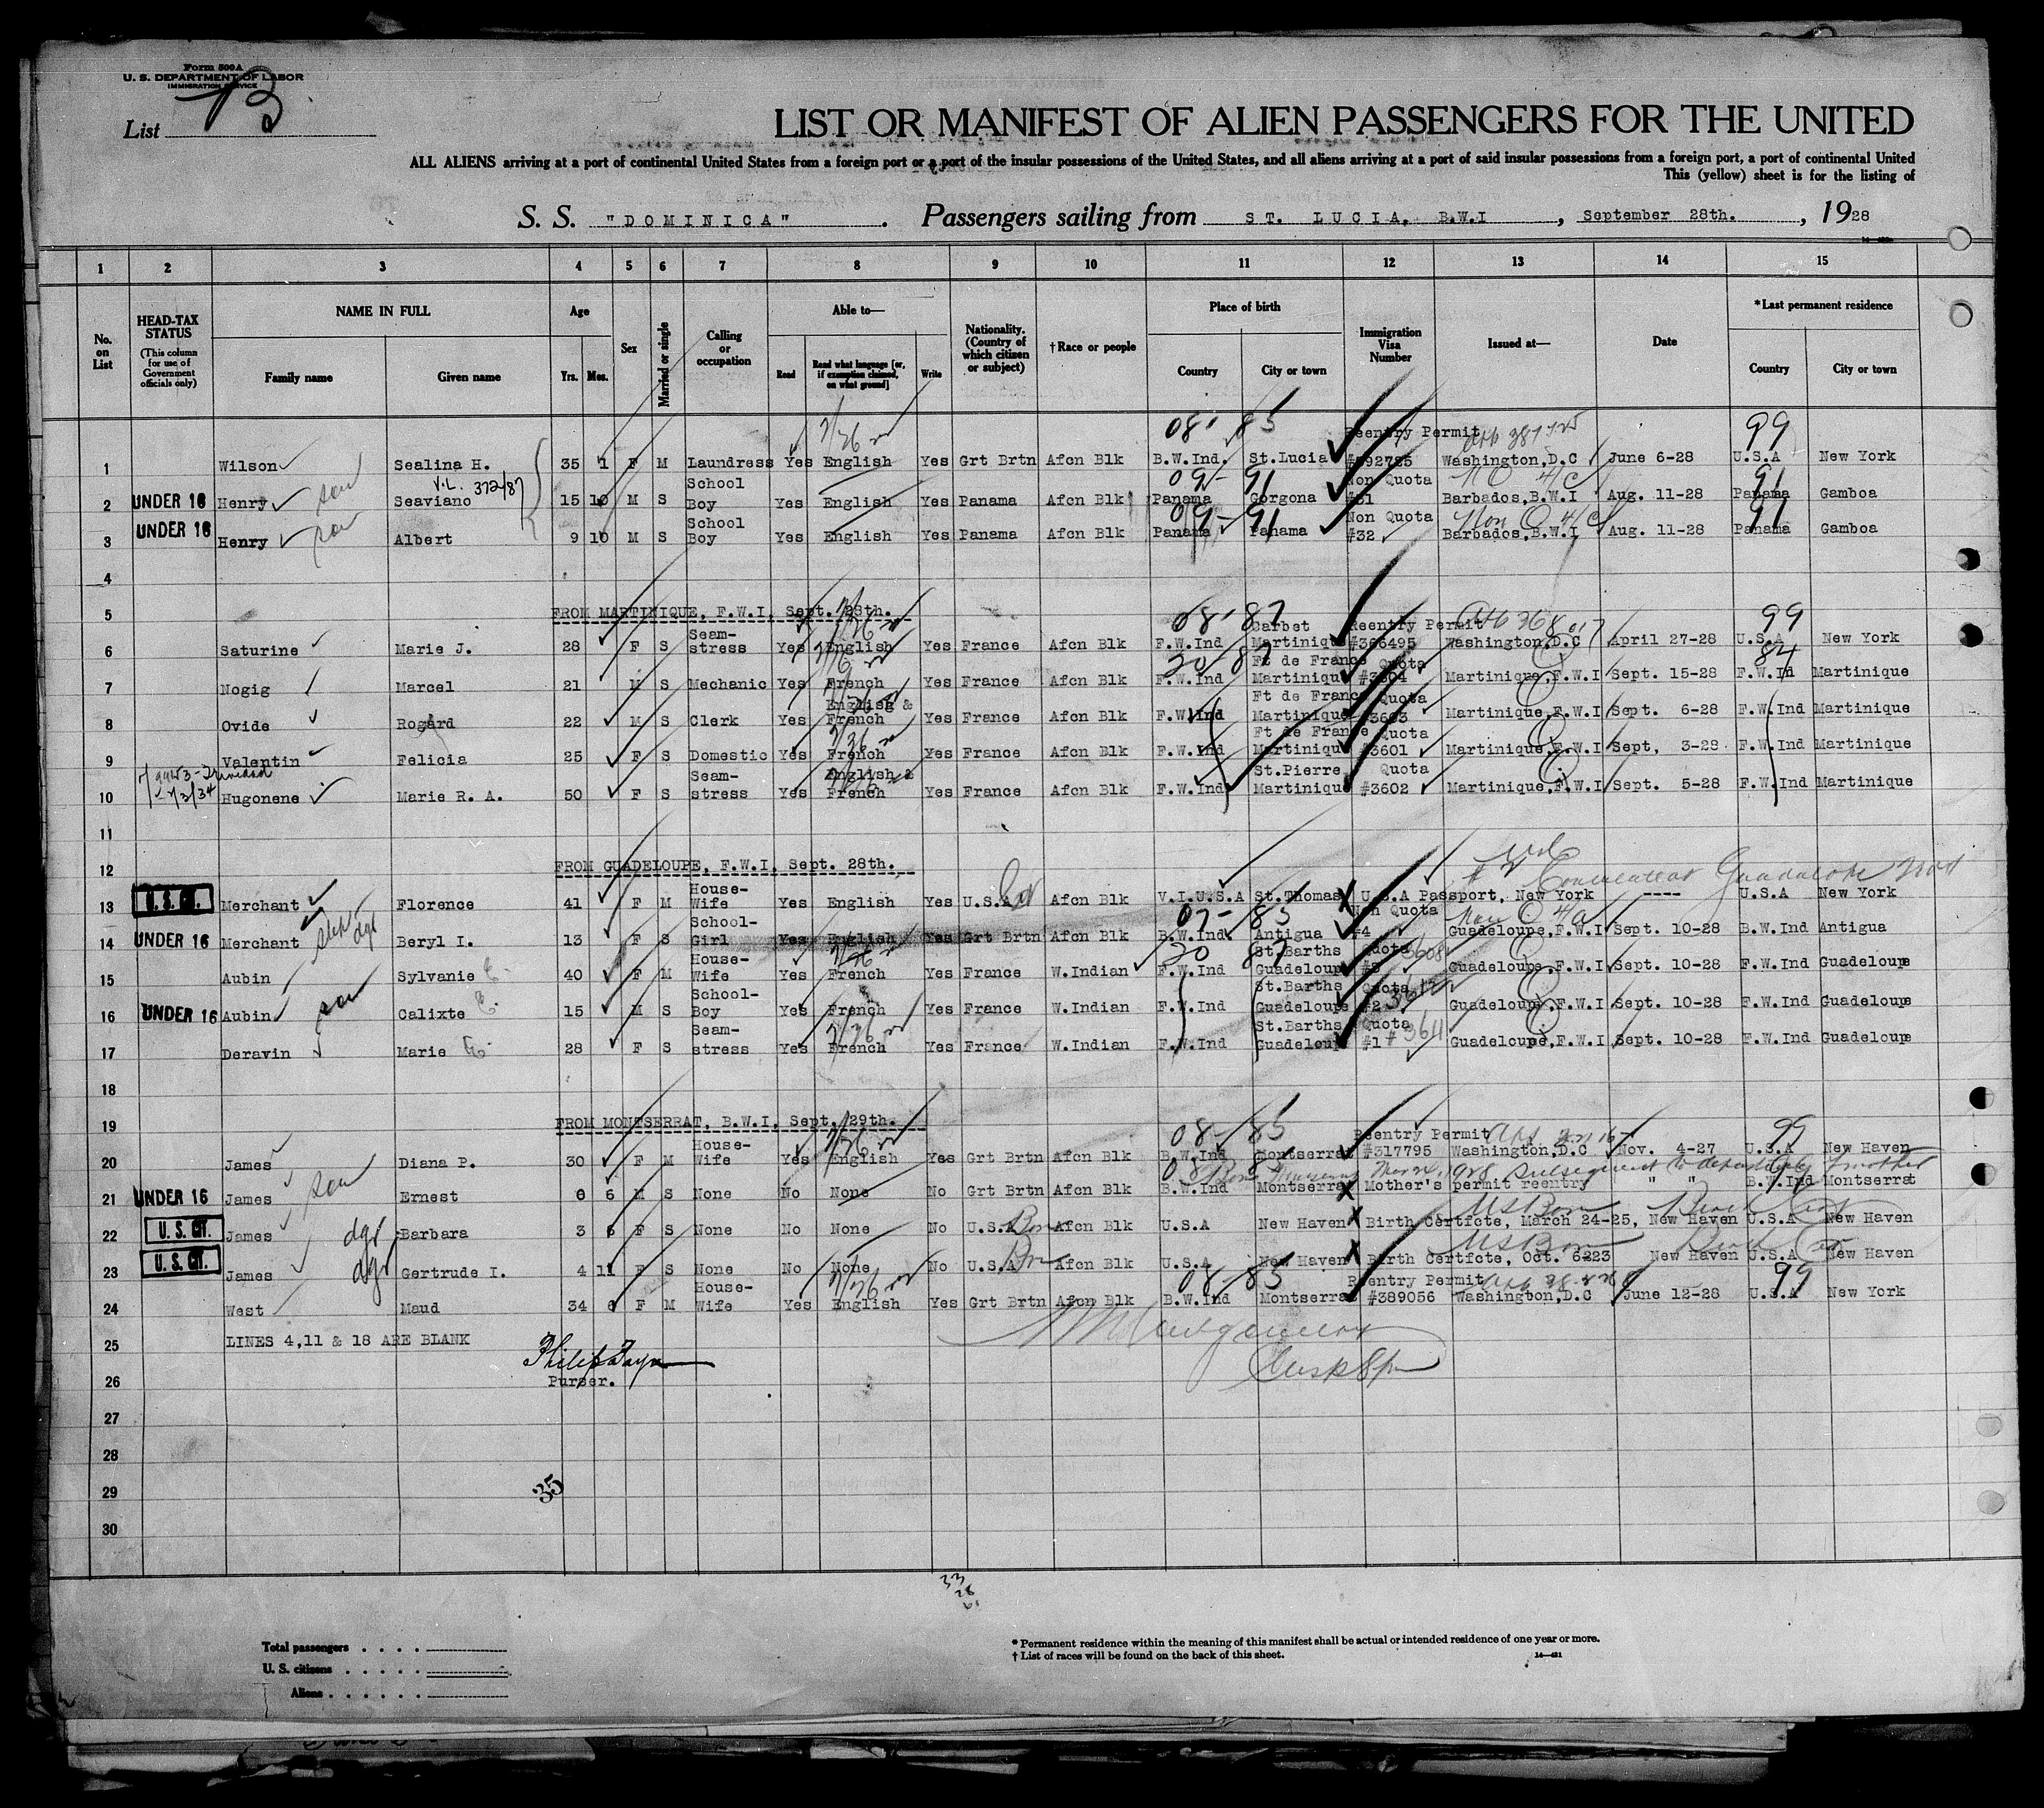 Form 500A
U. S. DEPARTMENT OF LABOR
IMMIGRATION SERVICE
List 13
LIST OR MANIFEST OF ALIEN PASSENGERS FOR THE UNITED
ALL ALIENS arriving at a port of continental United States from a foreign port or a port of the insular possessions of the United States, and all aliens arriving at a port of said insular possessions from a foreign port, a port of continental United
This (yellow) sheet is for the listing of
S. S. "DOMINICA". Passengers sailing from ST. LUCIA, B.W.I, September 28th., 1928
1 2 3 4 5 6 7 8 9 10 11 12 13 14 15
No. on List
HEAD-TAX STATUS (This column for use of Government officials only)
NAME IN FULL Family name Given name
Age Yrs. Mos.
Sex
Married or single
Calling or occupation
Able to— Read Read what language [or, if exemption claimed, on what ground] Write
Nationality. (Country of which citizen or subject)
†Race or people
Place of birth Country City or town
Immigration Visa Number
Issued at—
Date
*Last permanent residence Country City or town
08- 85 Reentry Permit 99
1 Wilson Sealina H. 35 1 F M Laundress Yes English Yes Grt Brtn Afcn Blk B.W.Ind. St.Lucia Washington,D.C June 6-28 U.S.A New York
V.L. 372/87 School 09- 91 Non Quota NQ 4/C 91
2 UNDER 16 Henry son Seaviano 15 10 M S Boy Yes English Yes Panama Afcn Blk Panama Gorgona #31 Barbados,B.W.I Aug. 11-28 Panama Gamboa
School 09- 91 Non Quota Non Q 4/C 91
3 UNDER 16 Henry son Albert 9 10 M S Boy Yes English Yes Panama Afcn Blk Panama Panama #32 Barbados,B.W.I Aug. 11-28 Panama Gamboa
4
5 FROM MARTINIQUE, F.W.I, Sept. 28th.
Seam- 08- 87 Carbet Reentry Permit 99
6 Saturine Marie J. 28 F S stress Yes English Yes France Afcn Blk F.W.Ind Martinique #366495 Washington,D.C April 27-28 U.S.A New York
20- 87 Ft de France Quota 84
7 Nogig Marcel 21 M S Mechanic Yes French Yes France Afcn Blk F.W.Ind Martinique #3604 Martinique,F.W.I Sept. 15-28 F.W.Ind Martinique
English & Ft de France Quota
8 Ovide Rogard 22 M S Clerk Yes French Yes France Afcn Blk F.W.Ind Martinique #3603 Martinique,F.W.I Sept. 6-28 F.W.Ind Martinique
Ft de France Quota
9 Valentin Felicia 25 F S Domestic Yes French Yes France Afcn Blk F.W.Ind Martinique #3601 Martinique,F.W.I Sept, 3-28 F.W.Ind Martinique
Seam- English & St.Pierre Quota
10 Hugonene Marie R. A. 50 F S stress Yes French Yes France Afcn Blk F.W.Ind Martinique #3602 Martinique,F.W.I Sept. 5-28 F.W.Ind Martinique
11
12 FROM GUADELOUPE, F.W.I, Sept. 28th.
House-
13 U.S. CIT. Merchant Florence 41 F M Wife Yes English Yes U.S.A Afcn Blk V.I.U.S.A St.Thomas U.S.A Passport, New York ---- U.S.A New York
School- 07- 85 Non Quota Non Q 4a
14 UNDER 16 Merchant step dgt Beryl I. 13 F S Girl Yes English Yes Grt Brtn Afcn Blk B.W.Ind Antigua #4 Guadeloupe,F.W.I Sept. 10-28 B.W.Ind Antigua
House- 20 87 St.Barths Quota 3608
15 Aubin Sylvanie 40 F M Wife Yes French Yes France W.Indian F.W.Ind Guadeloupe #3 Guadeloupe,F.W.I Sept. 10-28 F.W.Ind Guadeloupe
School- St.Barths Quota
16 UNDER 16 Aubin son Calixte 15 M S Boy Yes French Yes France W.Indian F.W.Ind Guadeloupe #2 Guadeloupe,F.W.I Sept. 10-28 F.W.Ind Guadeloupe
Seam- St.Barths Quota
17 Deravin Marie 28 F S stress Yes French Yes France W.Indian F.W.Ind Guadeloupe #1 Guadeloupe,F.W.I Sept. 10-28 F.W.Ind Guadeloupe
18
19 FROM MONTSERRAT, B.W.I, Sept. 29th.
House- 08- 85 Reentry Permit 99
20 James Diana P. 30 F M Wife Yes English Yes Grt Brtn Afcn Blk B.W.Ind Montserrat #317795 Washington,D.C Nov. 4-27 U.S.A New Haven
subsequent to departure of mother
21 UNDER 16 James son Ernest 0 6 M S None No None No Grt Brtn Afcn Blk B.W.Ind Montserrat Mother's permit reentry " " B.W.Ind Montserrat
US Born Birth Cert
22 U.S. CIT. James dgr Barbara 3 6 F S None No None No U.S.A Afcn Blk U.S.A New Haven Birth Certfcte, March 24-25, New Haven U.S.A New Haven
US Born Birth Cert
23 U.S. CIT. James dgr Gertrude I. 4 11 F S None No None No U.S.A Afcn Blk U.S.A New Haven Birth Certfcte, Oct. 6-23 New Haven U.S.A New Haven
House- 08- 85 Reentry Permit 99
24 West Maud 34 6 F M Wife Yes English Yes Grt Brtn Afcn Blk B.W.Ind Montserrat #389056 Washington,D.C June 12-28 U.S.A New York
25 LINES 4,11 & 18 ARE BLANK
26 Purser.
27
28
29 35
30
33
28
61
Total passengers
U. S. citizens
Aliens
* Permanent residence within the meaning of this manifest shall be actual or intended residence of one year or more.
† List of races will be found on the back of this sheet.
14—421